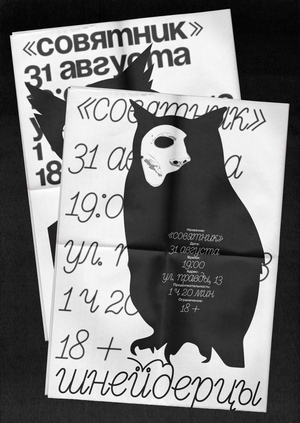 «совятник»
31 августа
1
18
«совятник»
31 ав
19:00
ул.
1 ч 20
18 +
Название:
«совятник»
Дата:
31 августа
Время:
19:00
Адрес:
ул. правды, 13
Продолжительность:
1 ч 20 мин
Ограничение:
18 +
шнейдерцы